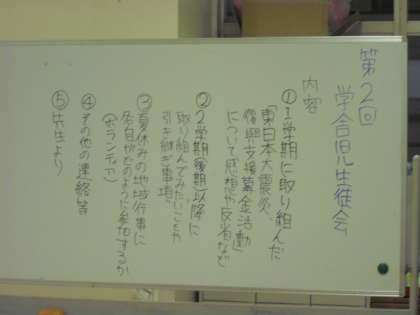 第2回
学合児生徒会
内容
①1学期に取り組んだ
「東日本大震災
復興支援募金活動」
について感想や反省など
②2学期(後期)以降に
取り組んでみたいことや
引き継ぎ事項
③夏休みの地域行事に
各自がどのように参加するか
(ボランティア)
④その他の連絡等
⑤先生より